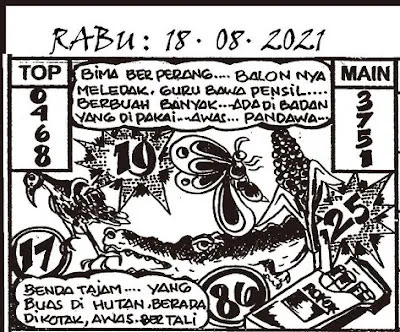 RABU: 18 · 08 · 2021
TOP
0
4
6
8
BIMA BERPERANG.... BALONNYA
MELEDAK, GURU BAWA PENSIL....
BERBUAH BANYAK...ADA DI BADAN
YANG DI PAKAI...AWAS... PANDAWA...
MAIN
3
7
5
1
19
17
25
86
BENDA TAJAM.... YANG
BUAS DI HUTAN, BERADA
DIKOTAK, AWAS BERTALI
ROKOK